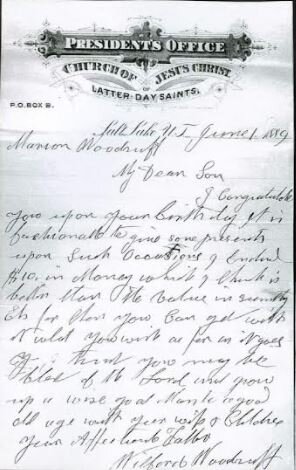 PRESIDENTS OFFICE
CHURCH OF JESUS CHRIST
OF
LATTER-DAY SAINTS.
P.O. BOX B.
Salt Lake U.T June 1, 1889
Marion Woodruff
My Dear Son
I Congratulate
you upon your birthday. It is
fashionable to give some presents
upon Such Occasions I
$10. in Money which I think is
better than the value in
for then you Can get with
it what you wish as far as it goes
I think you may be
of the Lord and
up a wise good Man to a good
old age with your wife & Children
Your Affectionate Father
Wilford Woodruff